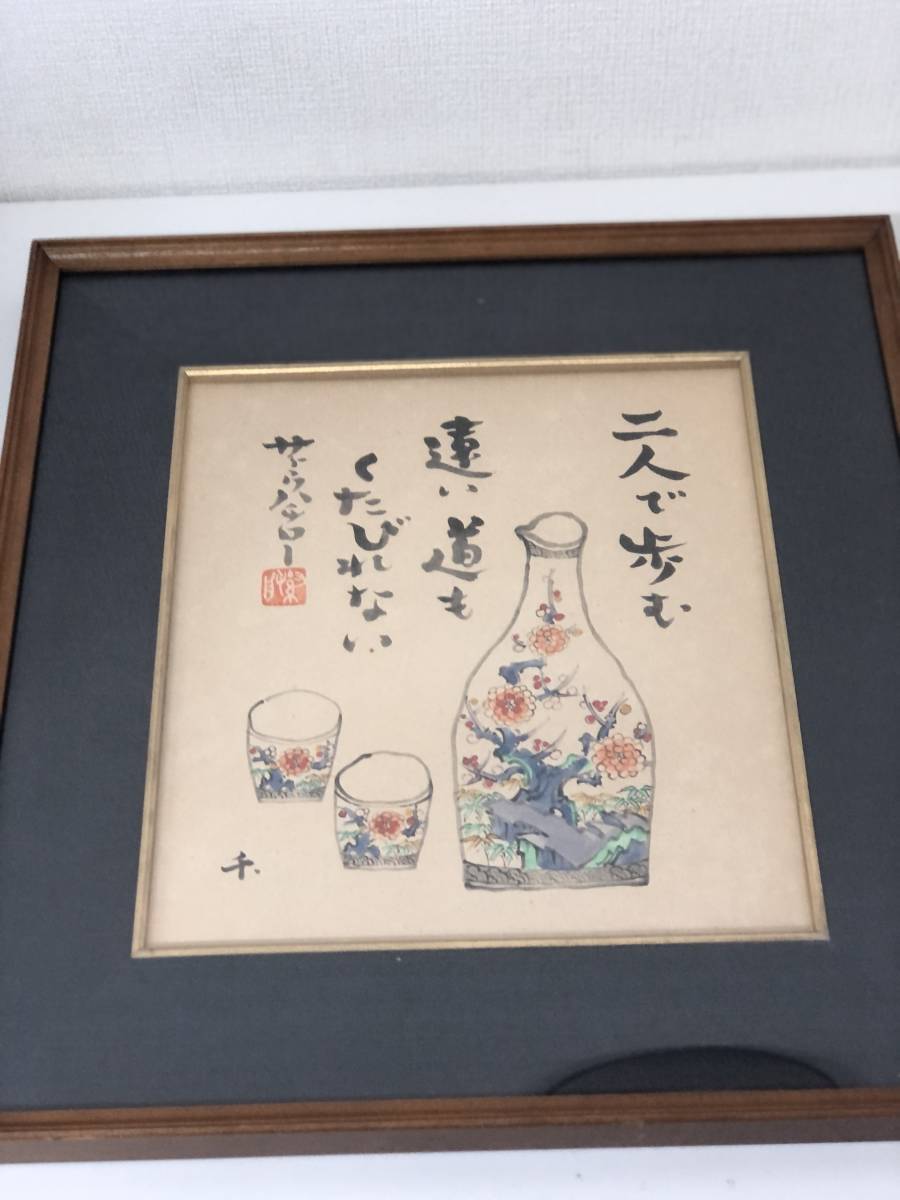 二人で歩む
遠い道も
くたびれない
サトウハチロー
千